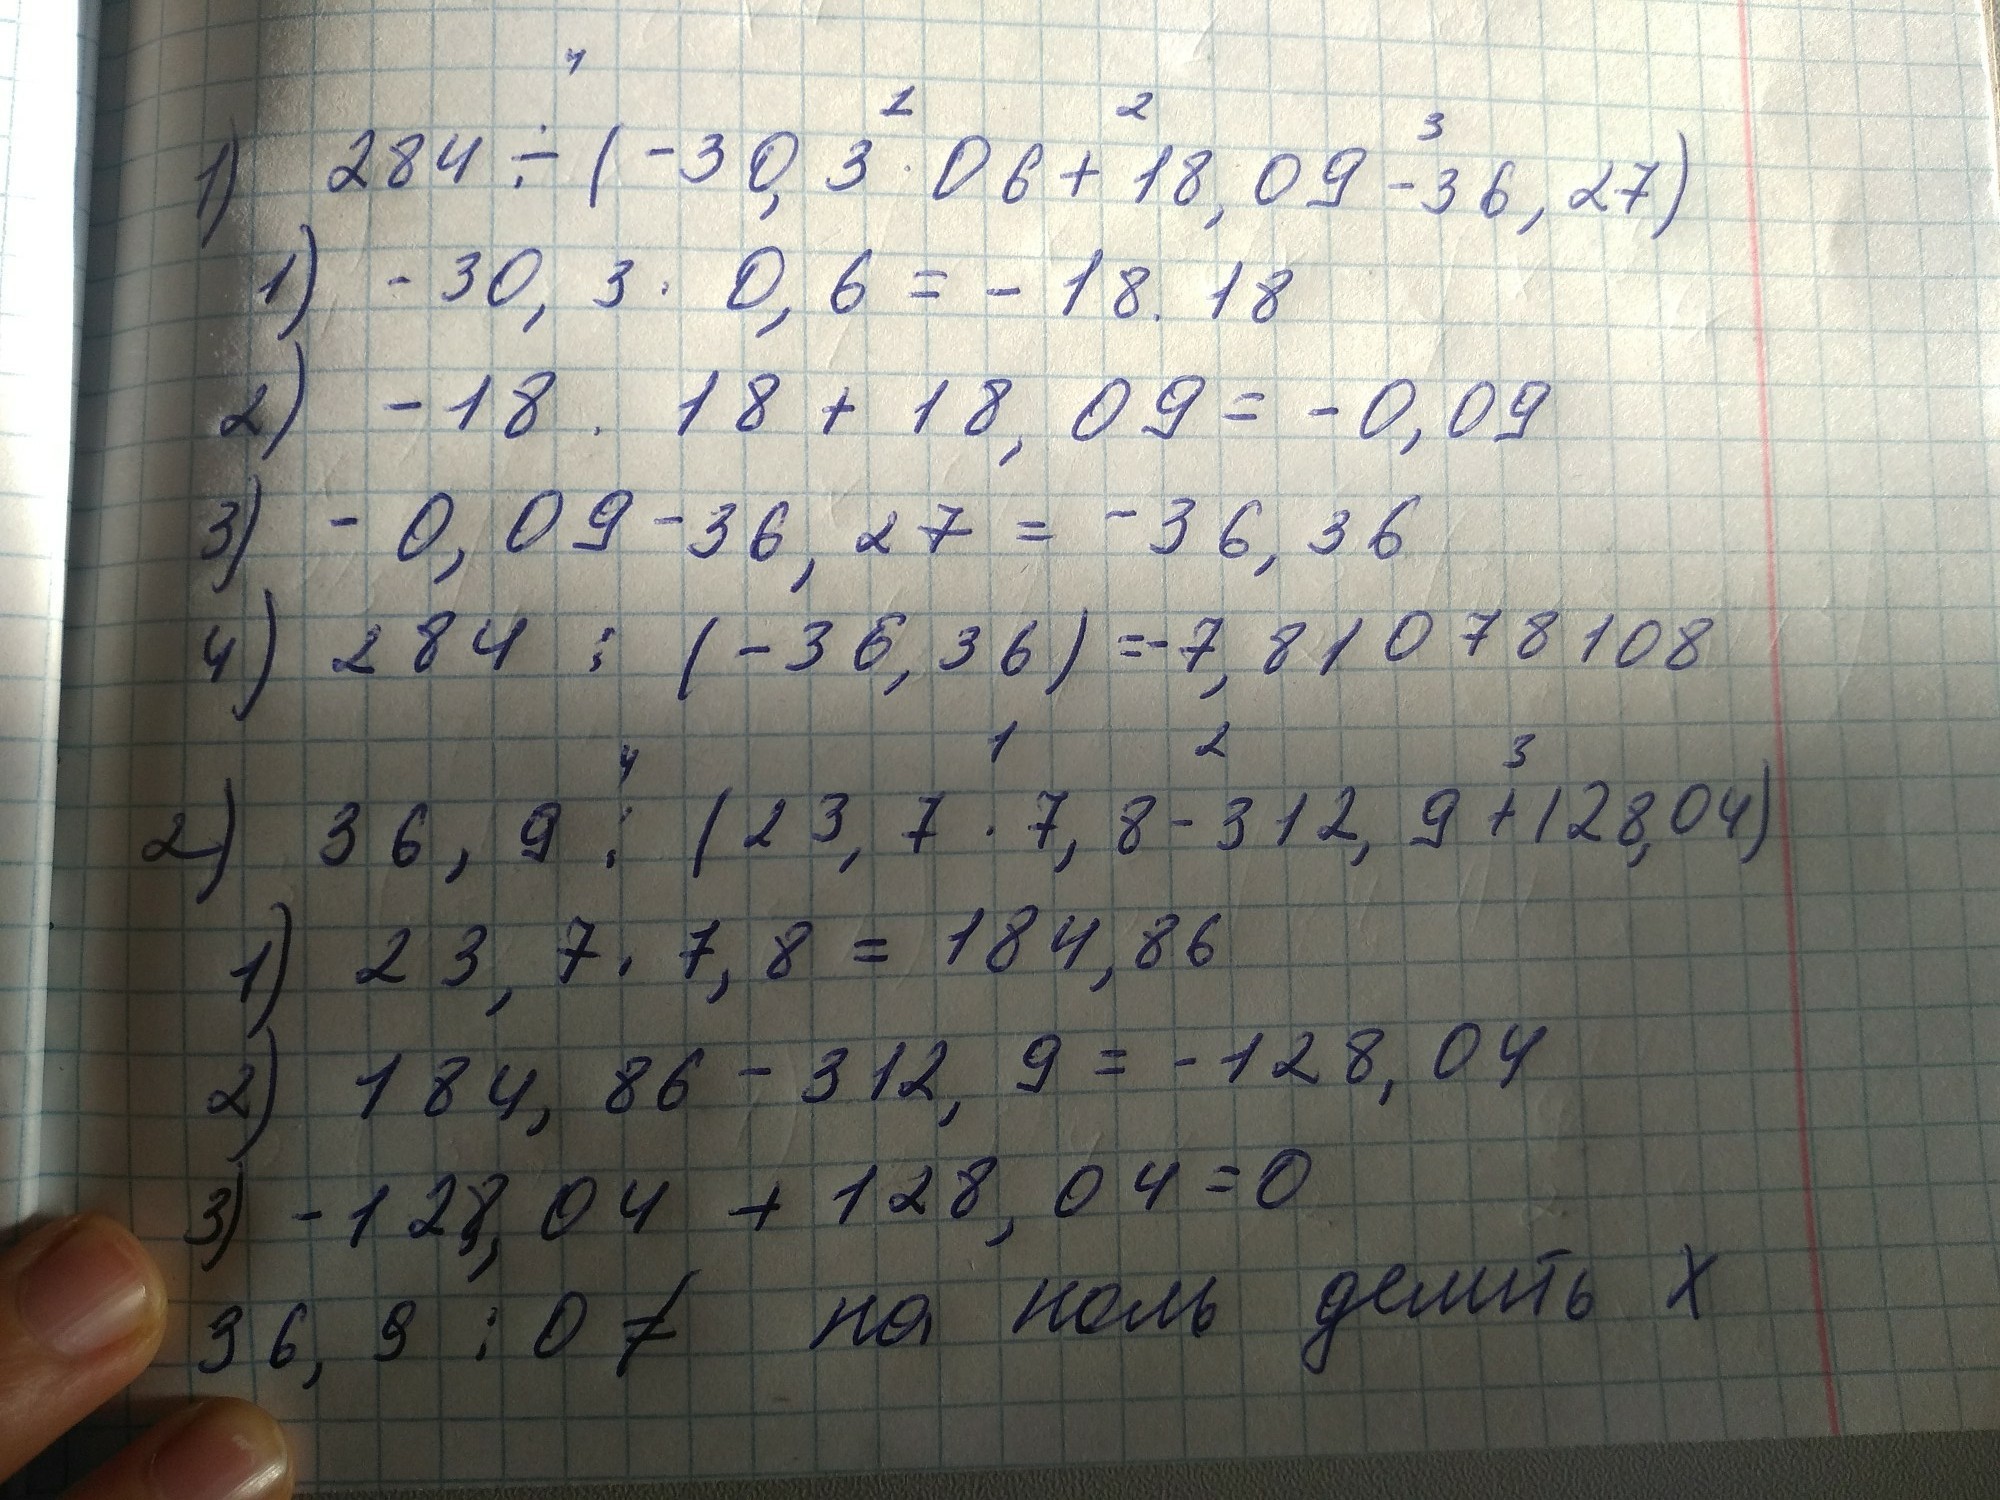 4 1 2 3
1) 284 ÷ (-30,3 · 06 + 18,09 - 36,27)
1) -30,3 · 0,6 = -18.18
2) -18.18 + 18,09 = -0,09
3) -0,09 - 36,27 = -36,36
4) 284 : (-36,36) = -7,81078108
4 1 2 3
2) 36,9 : (23,7 · 7,8 - 312,9 + 128,04)
1) 23,7 · 7,8 = 184,86
2) 184,86 - 312,9 = -128,04
3) -128,04 + 128,04 = 0
36,9 : 0 ≠ на ноль делить X